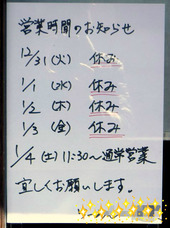 営業時間のお知らせ
12/31(火) 休み
1/1 (水) 休み
1/2 (木) 休み
1/3 (金) 休み
1/4 (土) 11:30〜通常営業
宜しくお願いします。